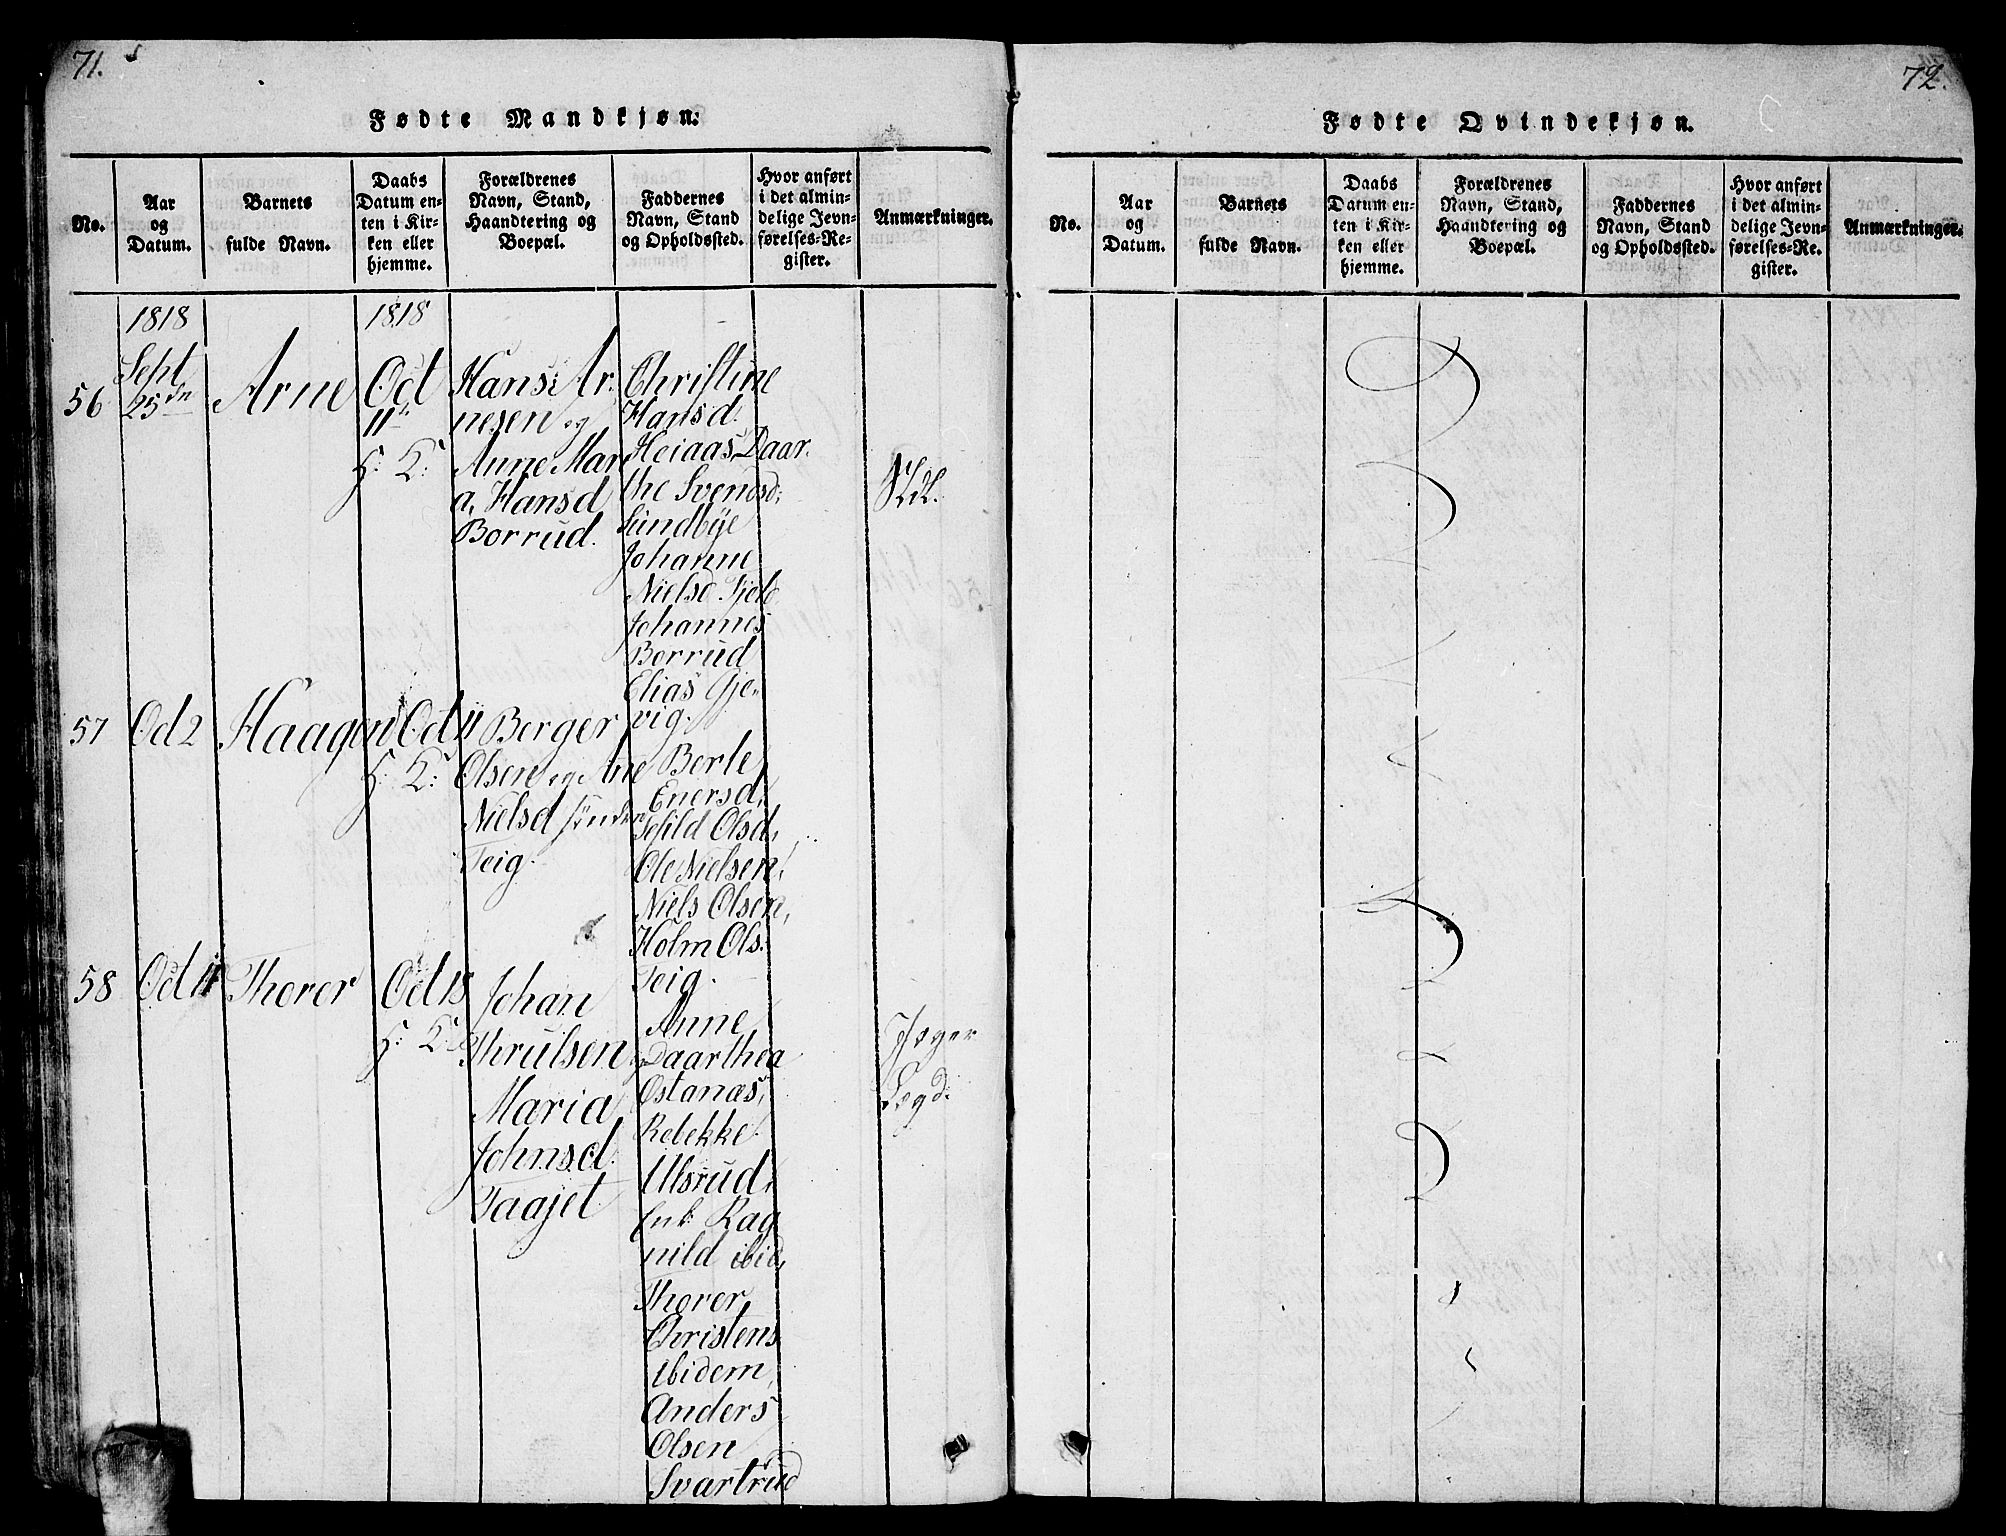 71.
Fødte Mandkjøn.
No.
Aar
og
Datum.
Barnets
fulde Navn.
Daabs
Datum en-
ten i Kir-
ken eller
hjemme.
Forældrenes
Navn, Stand,
Haandtering og
Boepæl.
Faddernes
Navn, Stand
og Opholdssted.
Hvor anført
i det almin-
delige Jevn-
førelses-Re-
gister.
Anmærkninger.
1818
1818
56
Sept
25de
Arne
Oct
11
H: K:
Hans Ar-
nesen og
Anne Mari
a, Hansd
Borrud.
Christine
Hansd.
Heiaas, Daar-
the Svendsd,
Sundbye
Johanne
Nielsd. Fjeld
Johannes
Borrud
Elias Gje-
vig.
57
Oct 2
Haagen
Oct 11
H: K:
Berger
Olsen og Ane
Nielsd sønder
Teig.
Berte
Enersd,
Sefild Olsd,
Ole Nielsen,
Niels Olsen,
Holm Ols.
Teig.
58
Oct 11
Thorer
Oct 18
H: K:
Johan
Thrulsen og
Maria
Johnsd.
Taajet
Anne
Daarthea
Ostanæs,
Rebekke
Ulsrud,
Enk: Rag
nild ibid,
Thorer
Christens
ibidem,
Anders
Olsen
Svartrud
Jæger
Lægd.
72.
Fødte Qvindekjøn.
No.
Aar
og
Datum.
Barnets
fulde Navn.
Daabs
Datum en-
ten i Kir-
ken eller
hjemme.
Forældrenes
Navn, Stand,
Haandtering og
Boepæl.
Faddernes
Navn, Stand
og Opholdssted.
Hvor anført
i det almin-
delige Jevn-
førelses-Re-
gister.
Anmærkninger.